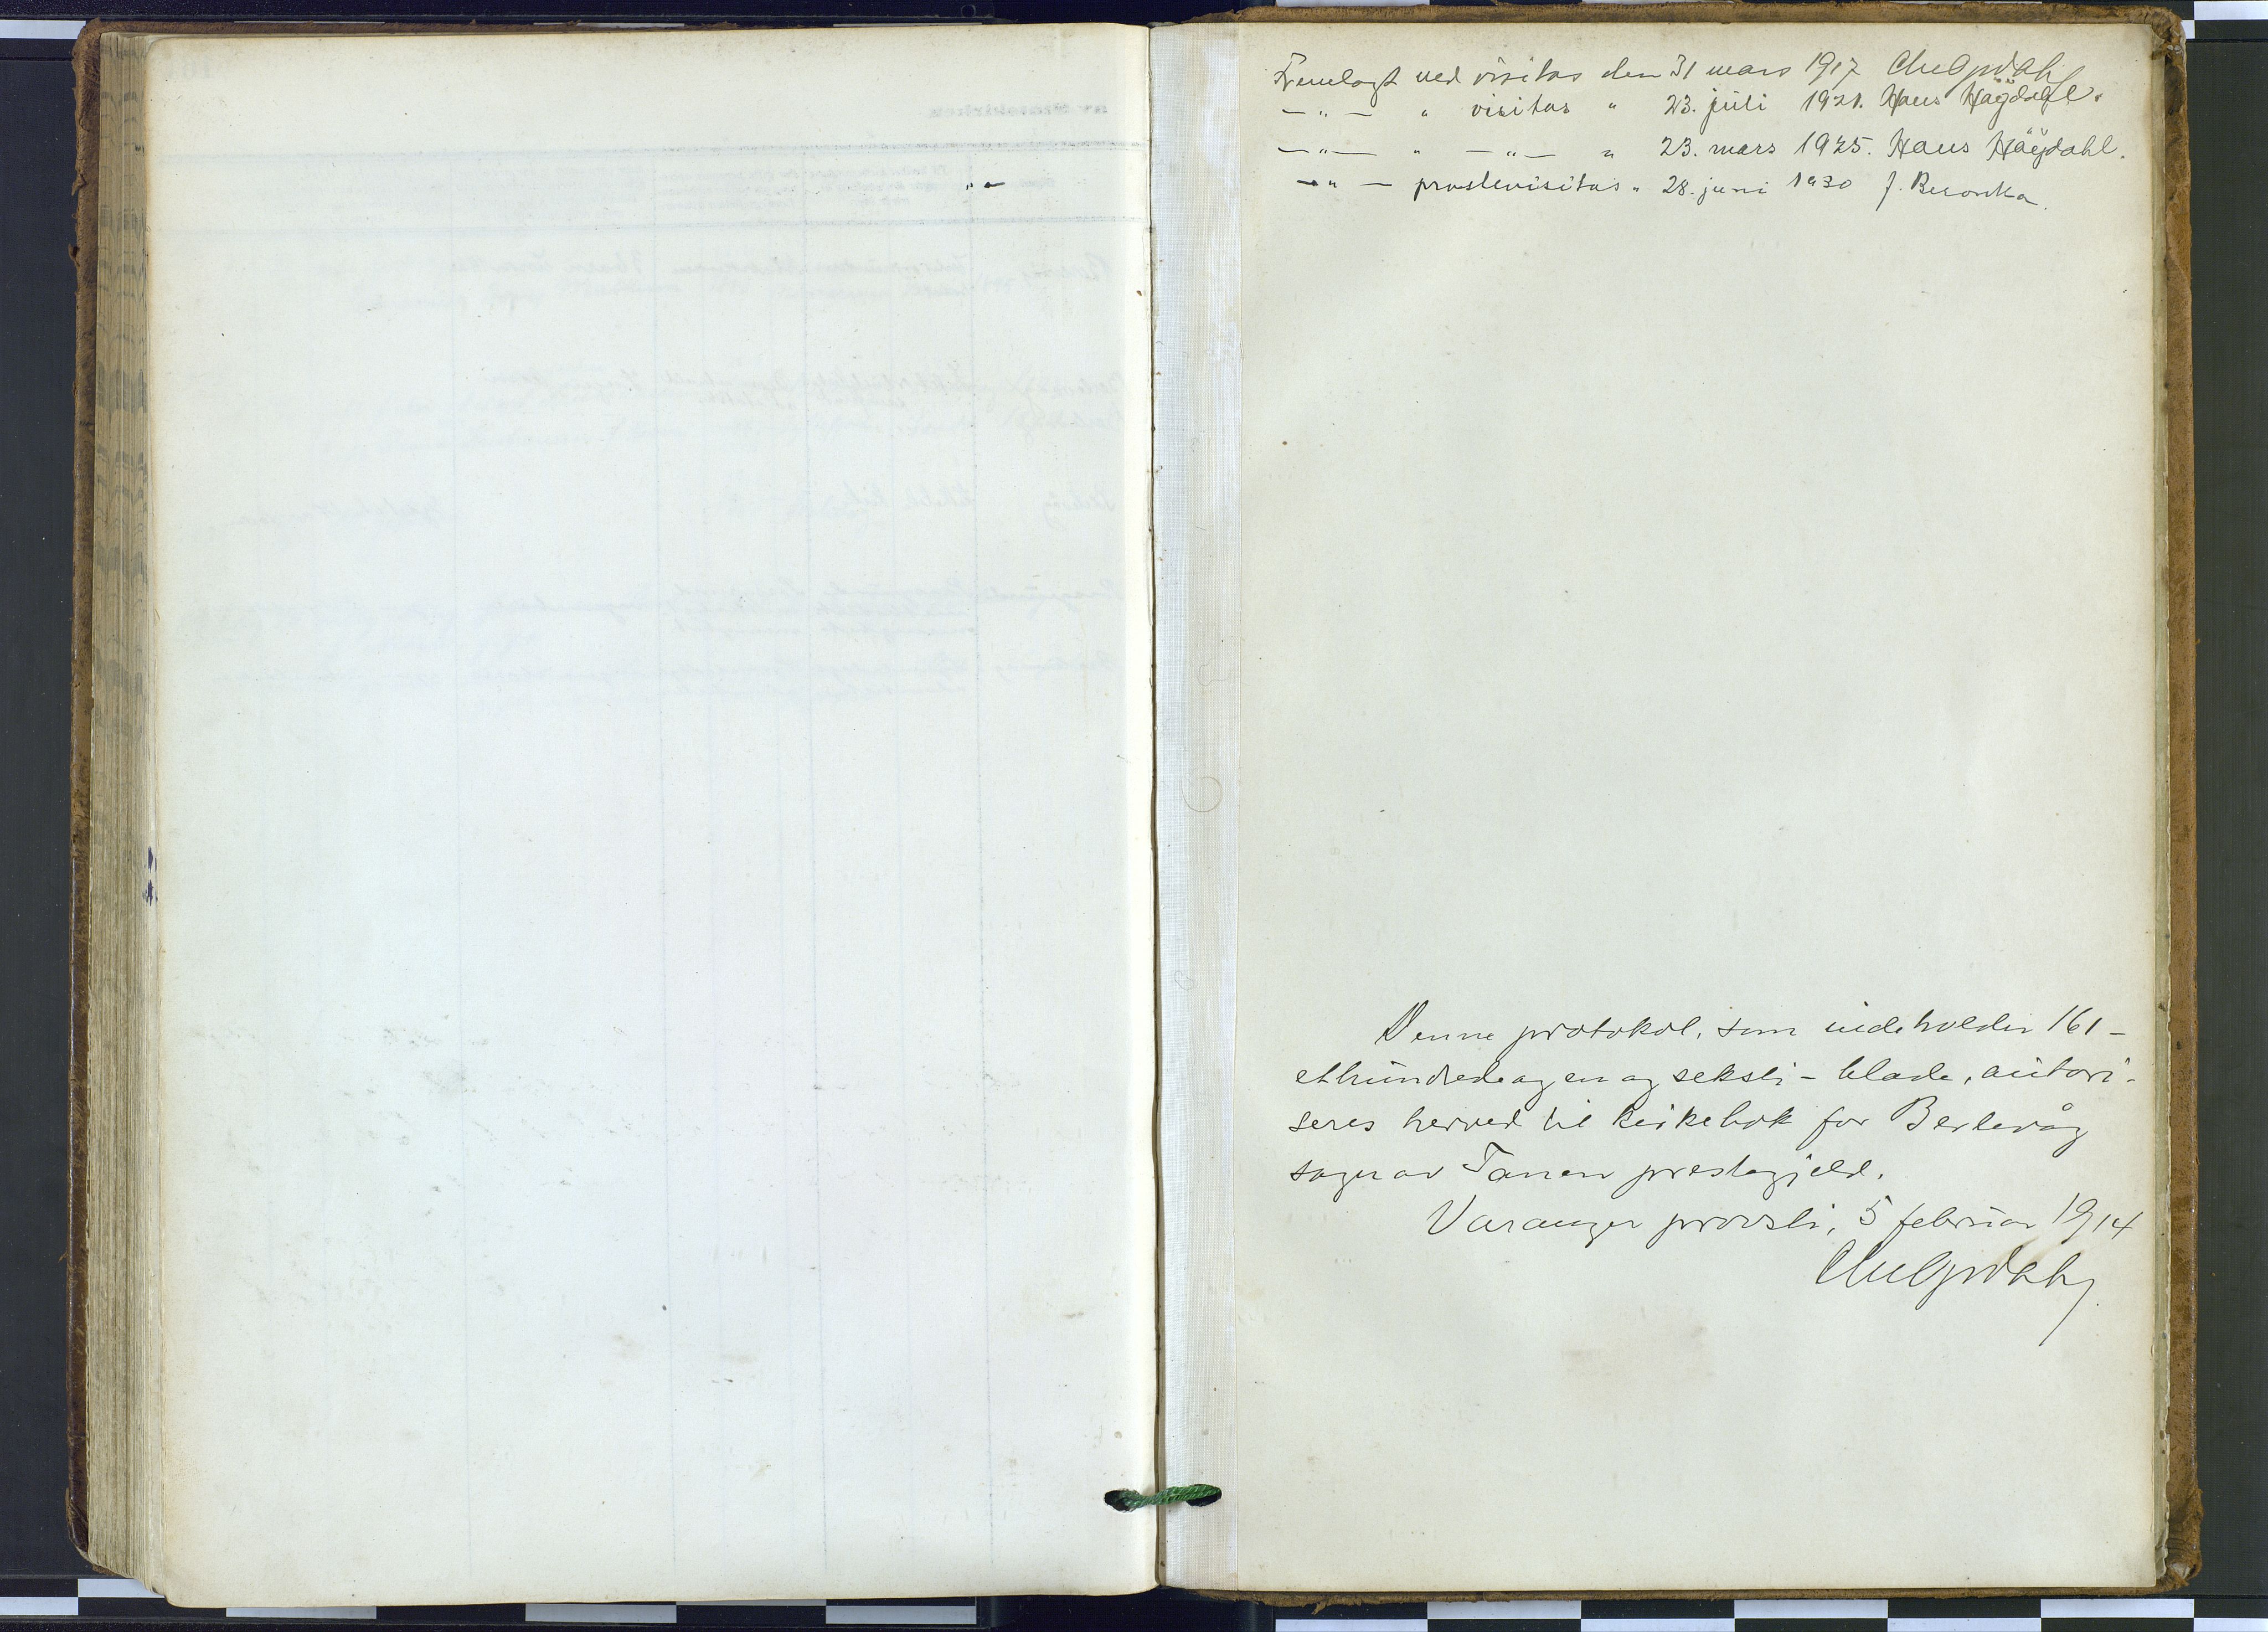 Fremlagt ved visitas den 31 mars 1917
— „ — „ visitas „ 23. juli 1921. Hans Høgdahl.
— „ — „ — „ — „ 23. mars 1925. Hans Høgdahl.
— „ — prostevisitas „ 28. juni 1930 J. Beronka.
Denne protokol, som indeholder 161 –
ethundredeogenogseksti – blade, autori-
seres herved til kirkebok for Berlevåg
sogn av Tanen prestegjeld.
Varanger provsti, 5 februar 1914